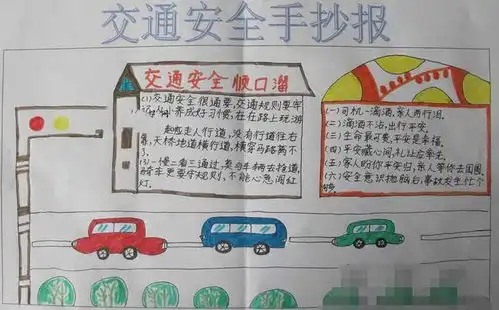 交通安全手抄报
交通安全顺口溜
(1)交通安全很重要,交通规则要牢
养成好习惯,在在路上玩游
走人行道,没有行道往右
靠,天桥地道横行道,横穿马路离不
了。
(3)一慢二看三通过,莫与车辆去抢道,
骑车更要守规则,不能心急闯红
灯。
(一)司机一滴酒,家人两行泪。
(二)滴酒不沾,出行平安。
(三)生命最可贵,平安是幸福。
(四)平安藏心间,礼让应牵
(五)家人盼你平安归,亲人等你去团圆
(六)安全意识抛脑后,事故发生忙个